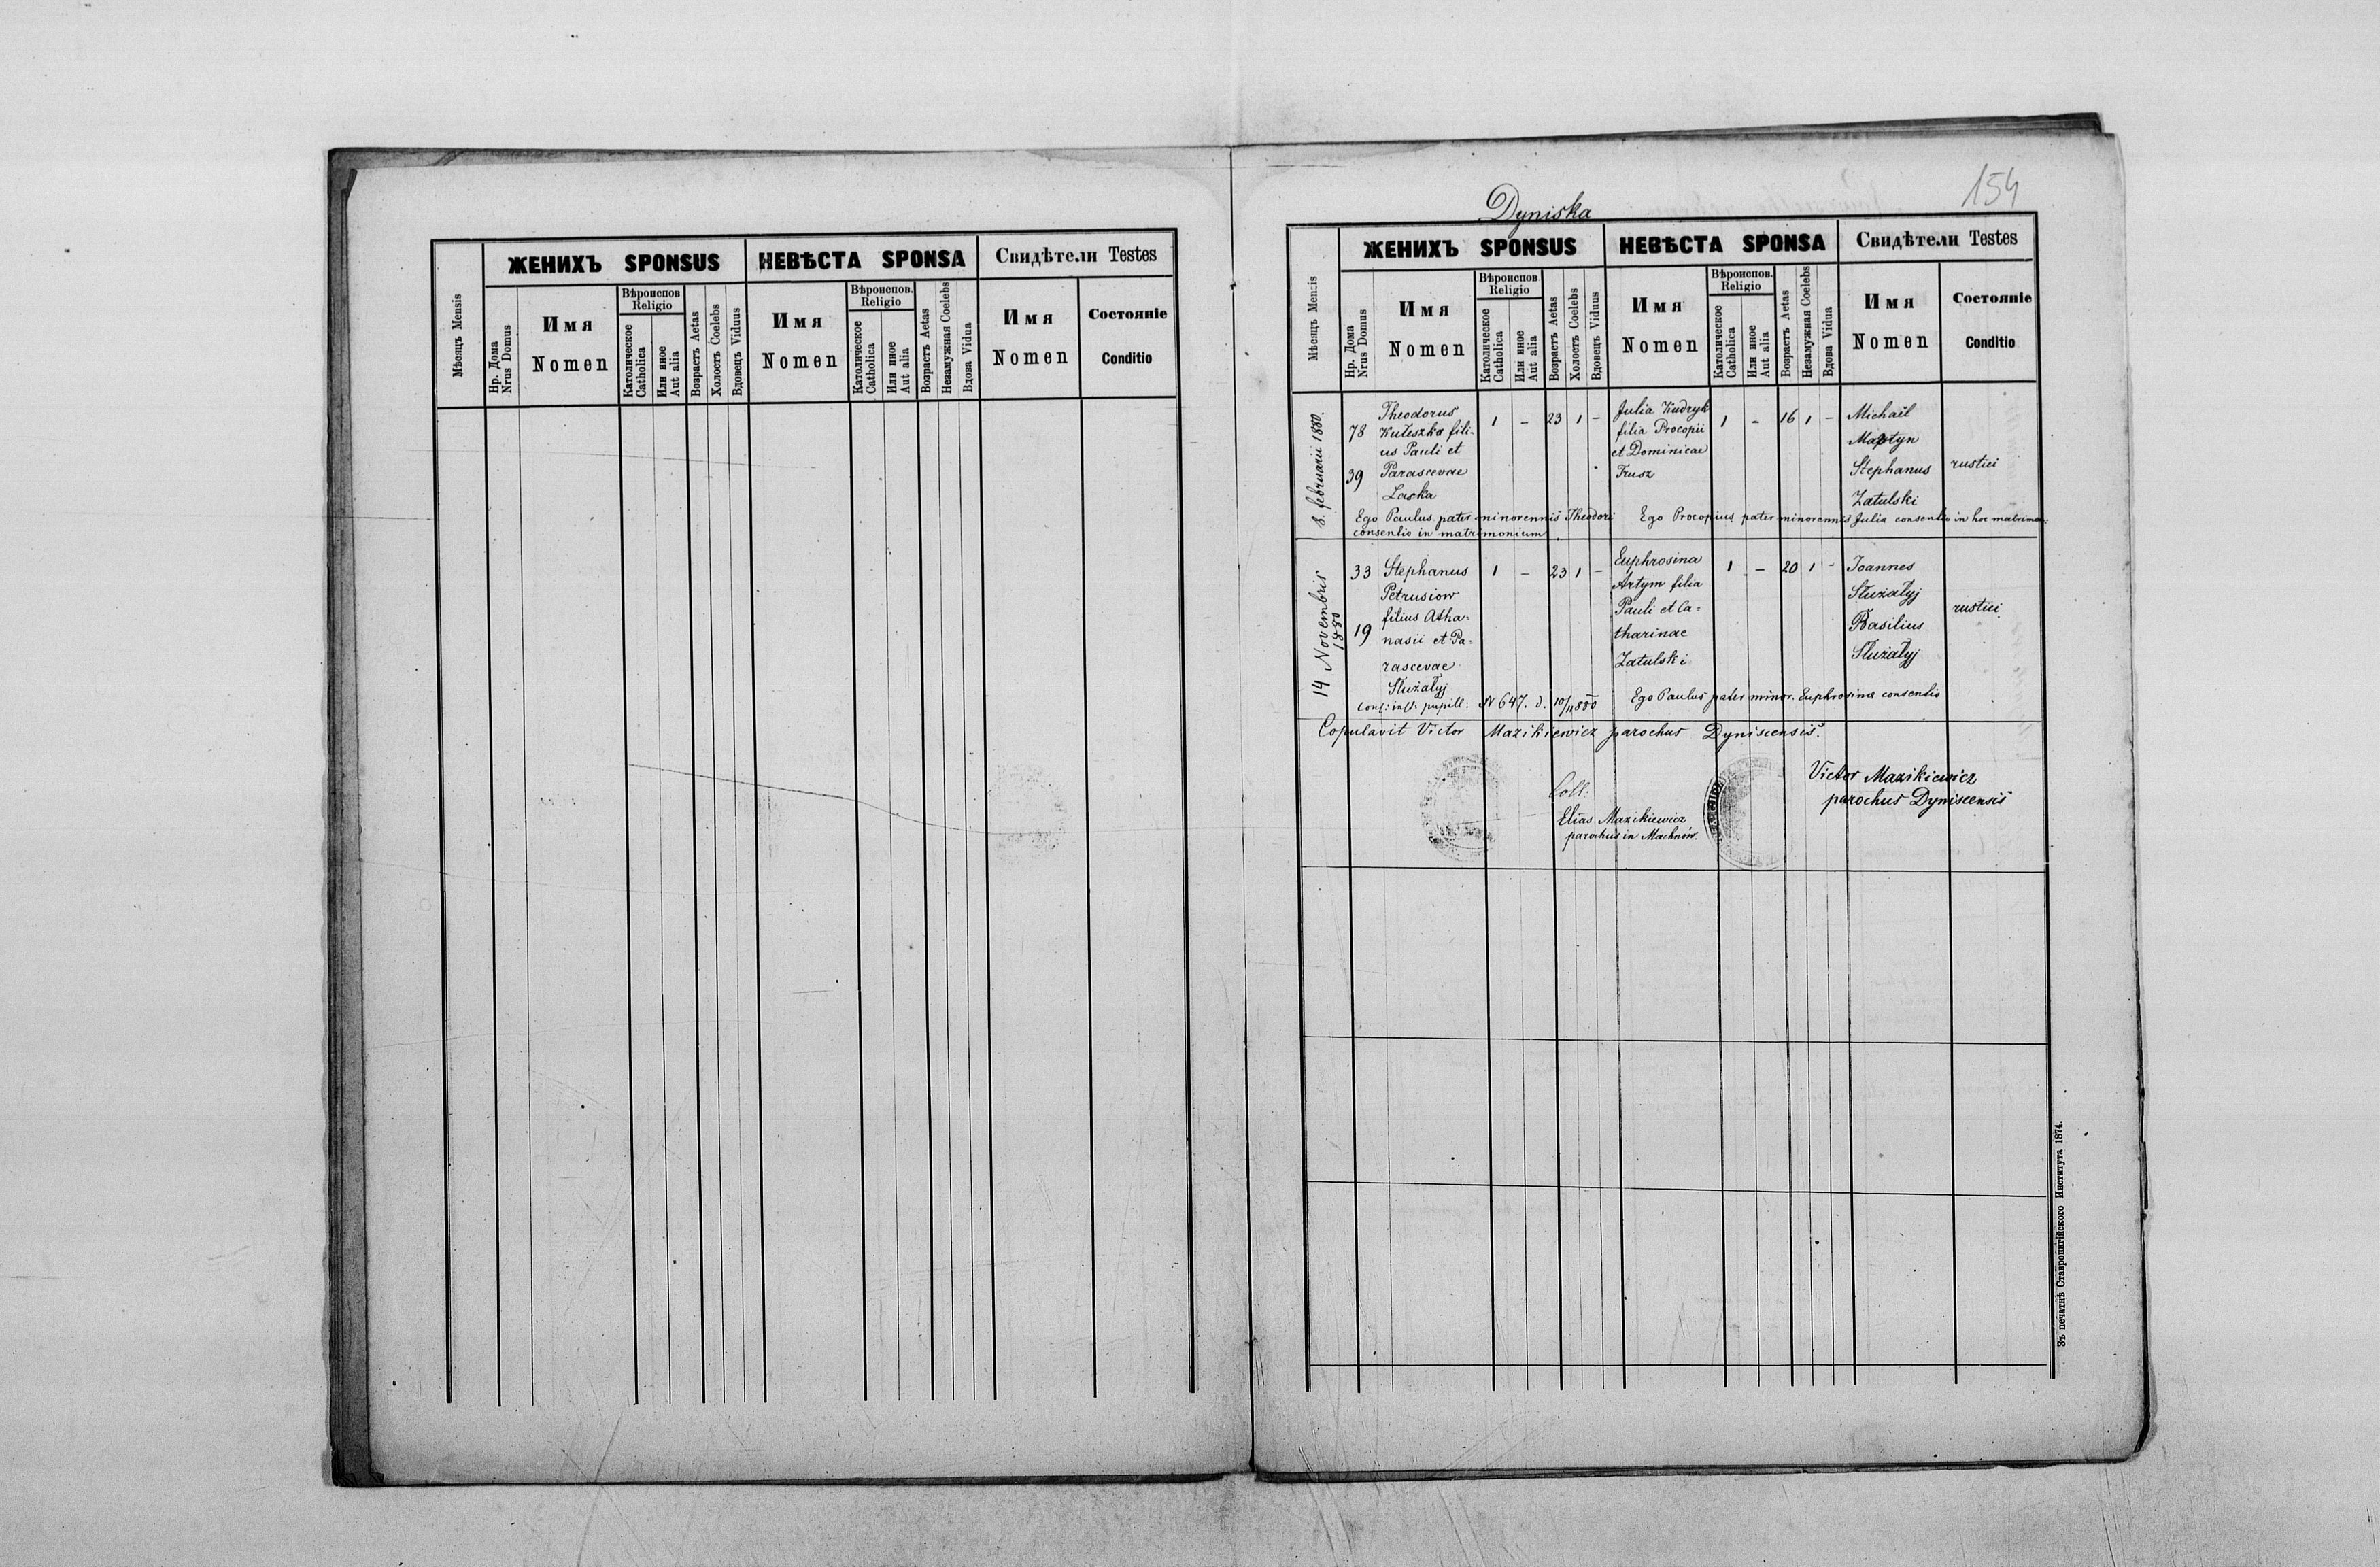 ЖЕНИХЪ SPONSUS
НЕВѢСТА SPONSA
Свидѣтели Testes
Мѣсяцъ Mensis
Нр. Дома
Nrus Domus
Имя
Nomen
Вѣроиспов
Religio
Католическое
Catholica
Или иное
Aut alia
Возрастъ Aetas
Холостъ Coelebs
Вдовецъ Viduus
Имя
Nomen
Вѣроиспов.
Religio
Католическое
Catholica
Или иное
Aut alia
Возрастъ Aetas
Незамужная Coelebs
Вдова Vidua
Имя
Nomen
Состояніе
Conditio
154
Dyniska
ЖЕНИХЪ SPONSUS
НЕВѢСТА SPONSA
Свидѣтели Testes
Мѣсяцъ Mensis
Нр. Дома
Nrus Domus
Имя
Nomen
Вѣроиспов.
Religio
Католическое
Catholica
Или иное
Aut alia
Возрастъ Aetas
Холостъ Coelebs
Вдовецъ Viduus
Имя
Nomen
Вѣроиспов.
Religio
Католическое
Catholica
Или иное
Aut alia
Возрастъ Aetas
Незамужная Coelebs
Вдова Vidua
Имя
Nomen
Состояніе
Conditio
8. februarii 1880.
78
39
Theodorus
Kuleszka fili-
us Pauli et
Parascevae
Lacka
1 - 23 1 -
Julia Kudryk
filia Procopii
et Dominicae
Frusz
1 - 16 1 -
Michaël
Martyn
Stephanus
Zatulski
rustici
Ego Paulus pater minorennis Theodori
consentio in matrimonium
Ego Procopius pater minorennis Julia consentio in hoc matrimon:
14 Novembris
1880
33
19
Stephanus
Petrusiow
filius Atha-
nasii et Pa-
rascevae
Służałyj
1 - 23 1 -
Euphrosina
Artym filia
Pauli et Ca-
tharinae
Zatulski
1 - 20 1 -
Joannes
Służałyj
Basilius
Służałyj
rustici
Cons: inst: pupill: N 647. d. 10/11 880
Ego Paulus pater minor. Euphrosinae consentio
Copulavit Victor Mazikiewicz parochus Dyniscensis.
Coll.
Elias Mazikiewicz
parochus in Machnów.
Victor Mazikiewicz
parochus Dyniscensis
Зъ печатнѣ Ставропигійского Института 1874.